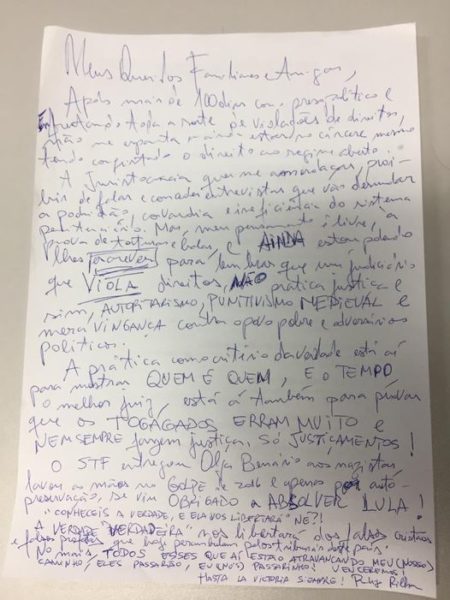 Meus Queridos Familiares e Amigos,
Após mais de 100 dias como preso político e
enfrentando toda a sorte de violações de direitos,
não me espanta ainda estar no cárcere mesmo
tendo conquistado o direito ao regime aberto.
A Juristocracia quer me amordaçar, proi-
bir de falar e conceder entrevistas que vão denunciar
a podridão, covardia e ineficiência do sistema
penitenciário. Mas, meu pensamento é livre, à
prova de torturas e balas, e AINDA estou podendo
lhes escrever para lembrar que um judiciário
que VIOLA direitos, NÃO pratica justiça e
sim, AUTORITARISMO, PUNITIVISMO MEDIEVAL e
mera VINGANÇA contra o povo pobre e adversários
políticos.
A prática como critério da verdade está aí
para mostrar QUEM É QUEM, E O TEMPO,
o melhor juiz, está aí também para provar
que os TOGAGADOS ERRAM MUITO e
NEM SEMPRE fazem justiça, SÓ JUSTIÇAMENTOS!
O STF entregou Olga Benário aos nazistas,
lavou as mãos no GOLPE de 2016 e apenas por auto-
preservação, se viu OBRIGADO a ABSOLVER LULA!
"CONHECEIS A VERDADE, E ELA VOS LIBERTARÁ" NÉ?!
A VERDADE "VERDADEIRA" nos libertará dos falsos cristãos
e falsos profetas que hoje perambulam pelos tribunais deste país.
No mais, TODOS ESSES QUE AÍ ESTÃO ATRAVANCANDO MEU (NOSSO)
CAMINHO, ELES PASSARÃO, EU (NÓS) PASSARINHO! VENCEREMOS!
HASTA LA VICTORIA SIEMPRE!